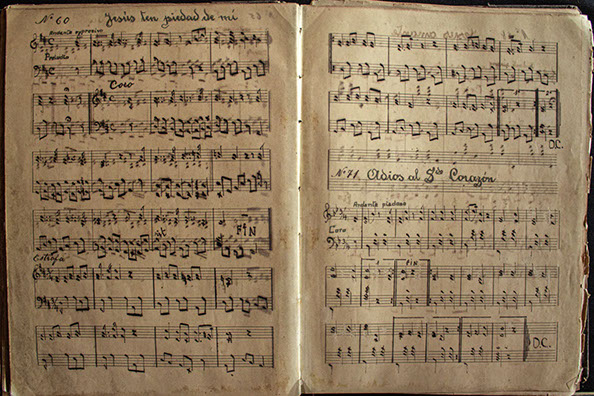 Nº 60 Jesús ten piedad de mí
Andante expresivo
Preludio
Coro
FIN
Estrofa
D.C.
Nº 71. Adios al S.do Corazón
Andante piadoso
Coro
FIN
D.C.